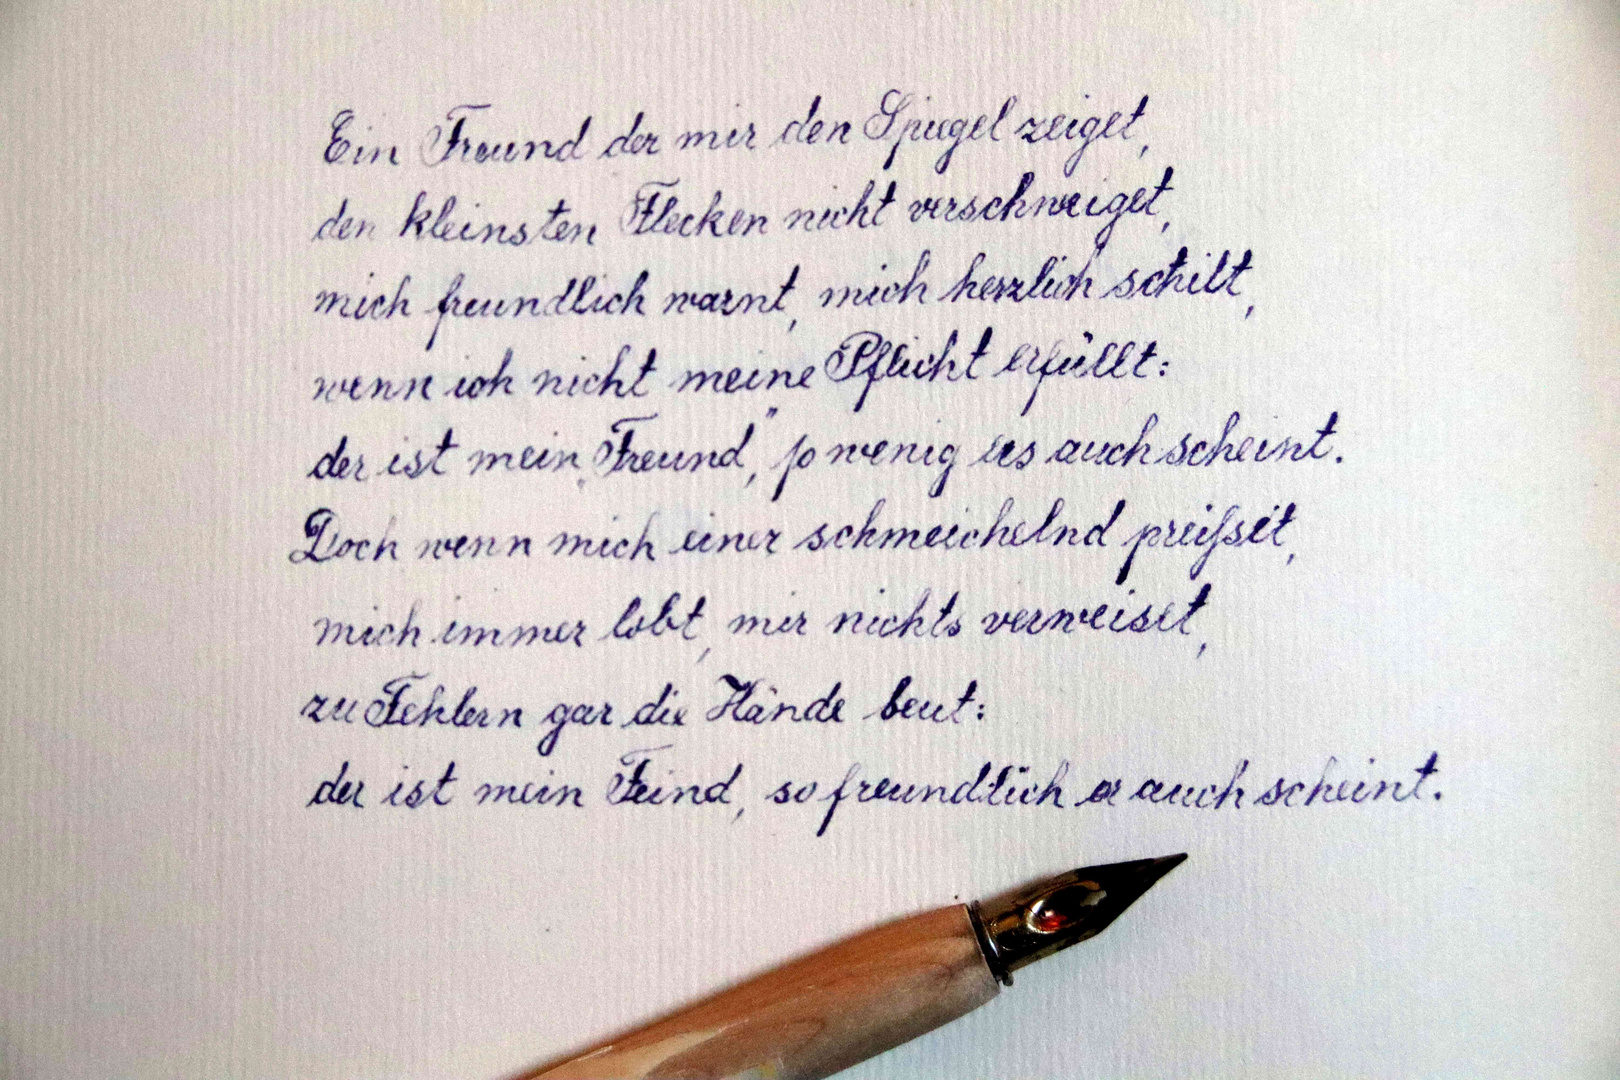 Ein Freund der mir den Spiegel zeiget,
den kleinsten Flecken nicht verschweiget,
mich freundlich warnt, mich herzlich schilt,
wenn ich nicht meine Pflicht erfüllt:
der ist mein „Freund“, so wenig es auch scheint.
Doch wenn mich einer schmeichelnd preißset,
mich immer lobt, mir nichts verweiset,
zu Fehlern gar die Hände beut:
der ist mein Feind, so freundlich er auch scheint.